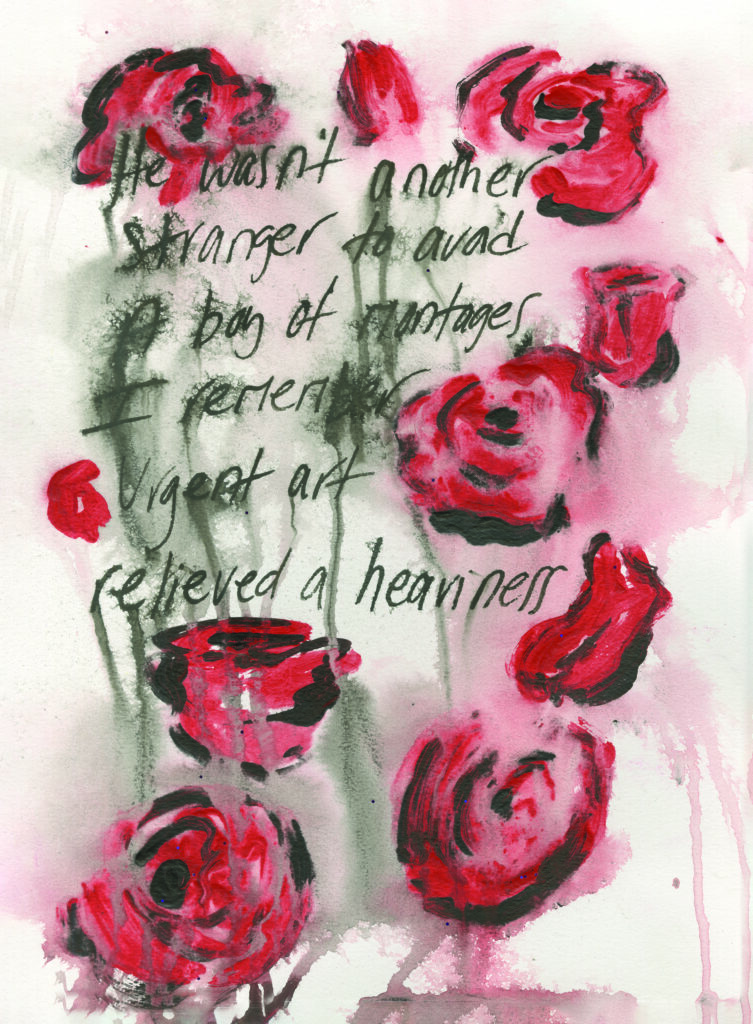 He wasn't another
stranger to avoid
A bag of montages
I remember
Urgent art
relieved a heaviness